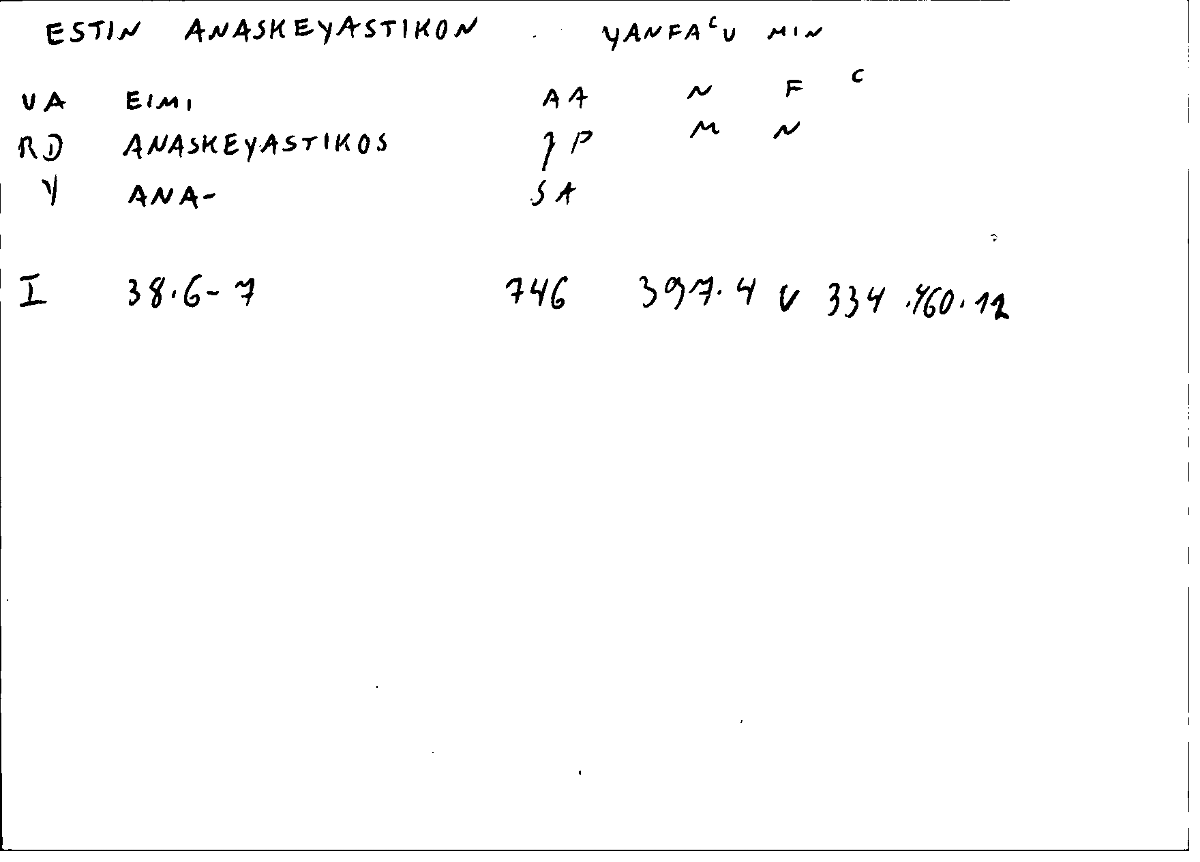 ESTIN ANASKEYASTIKON YANFAᶜU MIN
VA EIMI AA N F C
RD ANASKEYASTIKOS P M N
Y ANA- SA
I 38.6-7 746 397.4 V 334 .460.12